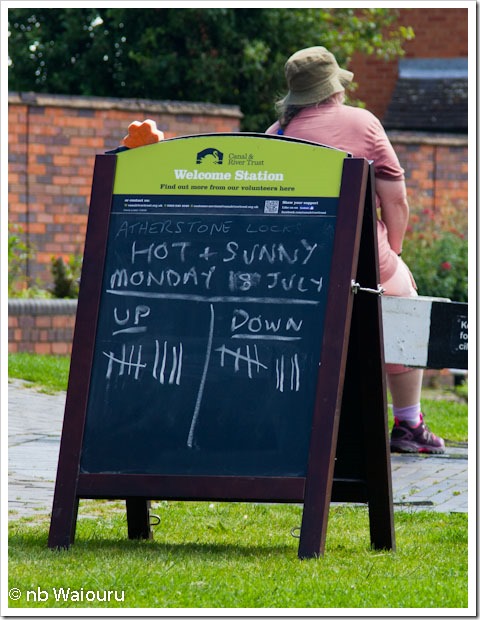 Canal &
River Trust
Welcome Station
Find out more from our volunteers here
ATHERSTONE LOCKS
HOT + SUNNY
MONDAY 18 JULY
UP DOWN
© nb Waiouru